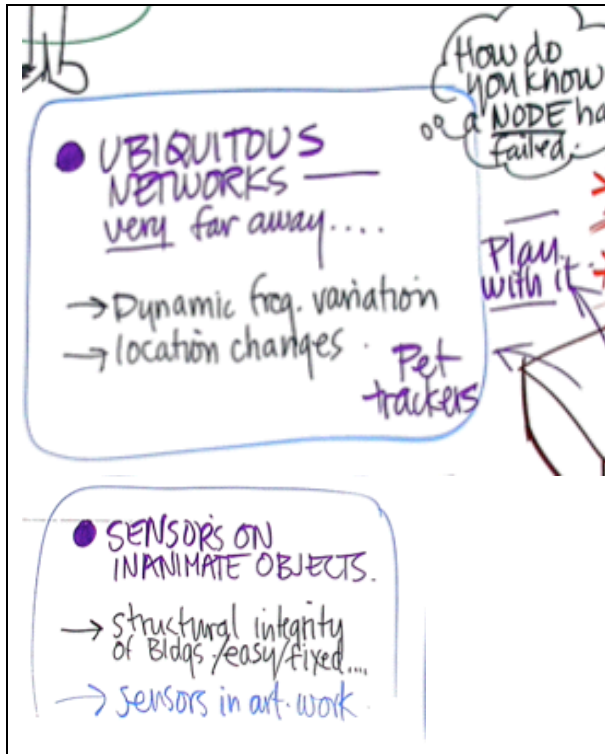 How do
you know
a NODE ha
failed.
● UBIQUITOUS
NETWORKS —
very far away....
→ Dynamic freq. variation
→ location changes.
Pet
trackers
Play
with it.
● SENSORS ON
INANIMATE OBJECTS.
→ structural integrity
of Bldgs./easy/fixed....
→ sensors in art.work.